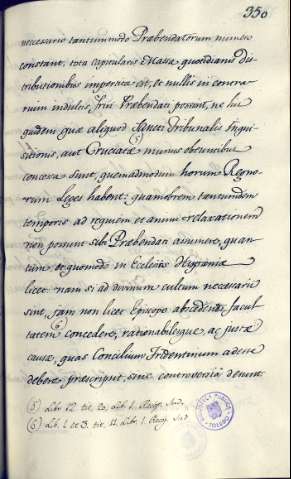 350
necessario tantummodo Præbendatorum numero
constant, tota capitularis Massa quotidianis Dis-
tributionibus impensa sit, et nullis in contra-
rium indultis frui Præbendati possunt, ne iis
quidem quæ aliquod Sancti Tribunalis Inqui-
sitionis, aut Cruciatæ munus obeuntibus
concessa sunt, quemadmodum horum Regno-
rum Leges habent: quamobrem tantumdem
temporis ad requiem et animi relaxationem
non possunt sibi Præbendati assumere, quan-
tum, et quomodo in Ecclesiis Hispaniæ
licet: nam si ad divinum cultum necessarii
sint, jam non licet Episcopo abscedendi facul-
tatem concedere, rationabilesque ac justæ
causæ, quas Concilium Tridentinum adesse
debere præscripsit, sine controversia desunt.
(5) Lib. 12. tit. 20. Lib. 1. Recop. Ind.
(6) Lib. 1. et 3. tit. 11. Lib. 1. Recop. Ind.
TOLEDO